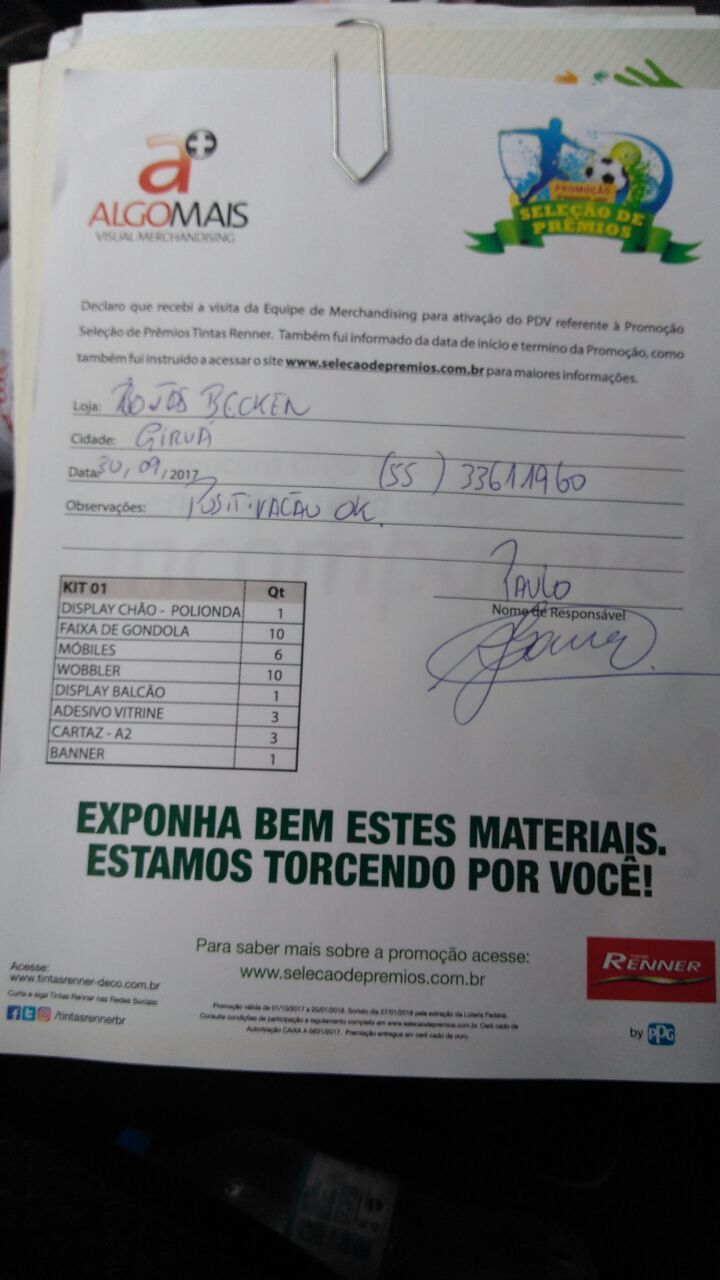 a+
ALGOMAIS
VISUAL MERCHANDISING
PROMOÇÃO
SELEÇÃO DE
PRÊMIOS
Declaro que recebi a visita da Equipe de Merchandising para ativação do PDV referente à Promoção
Seleção de Prêmios Tintas Renner. Também fui informado da data de início e termino da Promoção, como
também fui instruido a acessar o site www.selecaodepremios.com.br para maiores informações.
Loja: LOJAS BECKER
Cidade: GIRUÁ
Data: 30/09/2017 (55) 33611960
Observações: POSITIVAÇÃO OK.
PAULO
Nome de Responsável
KIT 01 Qt
DISPLAY CHÃO - POLIONDA 1
FAIXA DE GONDOLA 10
MÓBILES 6
WOBBLER 10
DISPLAY BALCÃO 1
ADESIVO VITRINE 3
CARTAZ - A2 3
BANNER 1
EXPONHA BEM ESTES MATERIAIS.
ESTAMOS TORCENDO POR VOCÊ!
Para saber mais sobre a promoção acesse:
www.selecaodepremios.com.br
Acesse:
www.tintasrenner-deco.com.br
Curta e siga Tintas Renner nas Redes Sociais:
/tintasrennerbr
Promoção válida de 01/10/2017 a 20/01/2018. Sorteio dia 27/01/2018 pela extração da Loteria Federal.
Consulte condições de participação e regulamento completo em www.selecaodepremios.com.br. Certi cado de
Autorização CAIXA 4-5631/2017. Premiação entregue em certi cado de ouro.
TINTAS
RENNER
by PPG